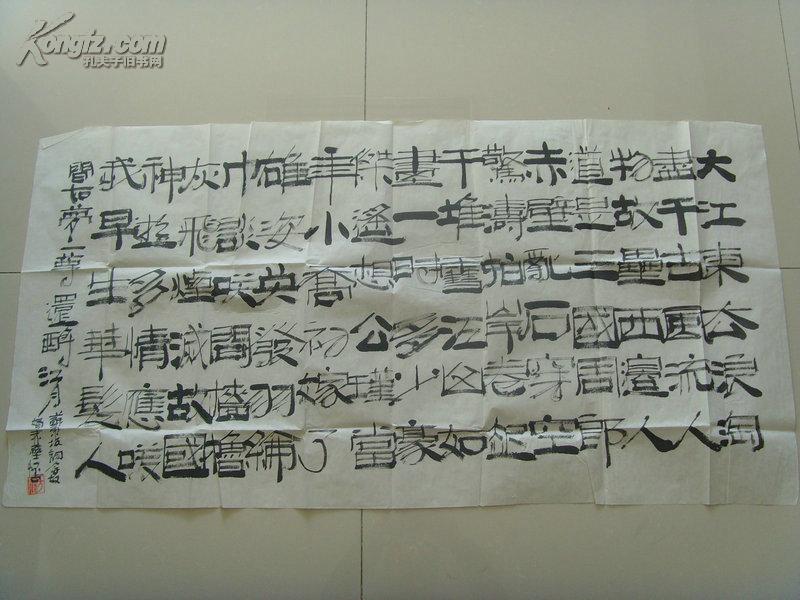 Kongfz.com
孔夫子旧书网
大江東去浪淘
盡千古風流人
物故壘西邊人
道是三國周郎
赤壁亂石穿空
驚濤拍岸卷起
千堆雪江山如
畫一時多少豪
傑遙想公瑾當
年小喬初嫁了
雄姿英發羽綸
巾談笑間檣櫓
灰飛煙滅故國
神遊多情應笑
我早生華髮人
間如夢一尊還酹江月